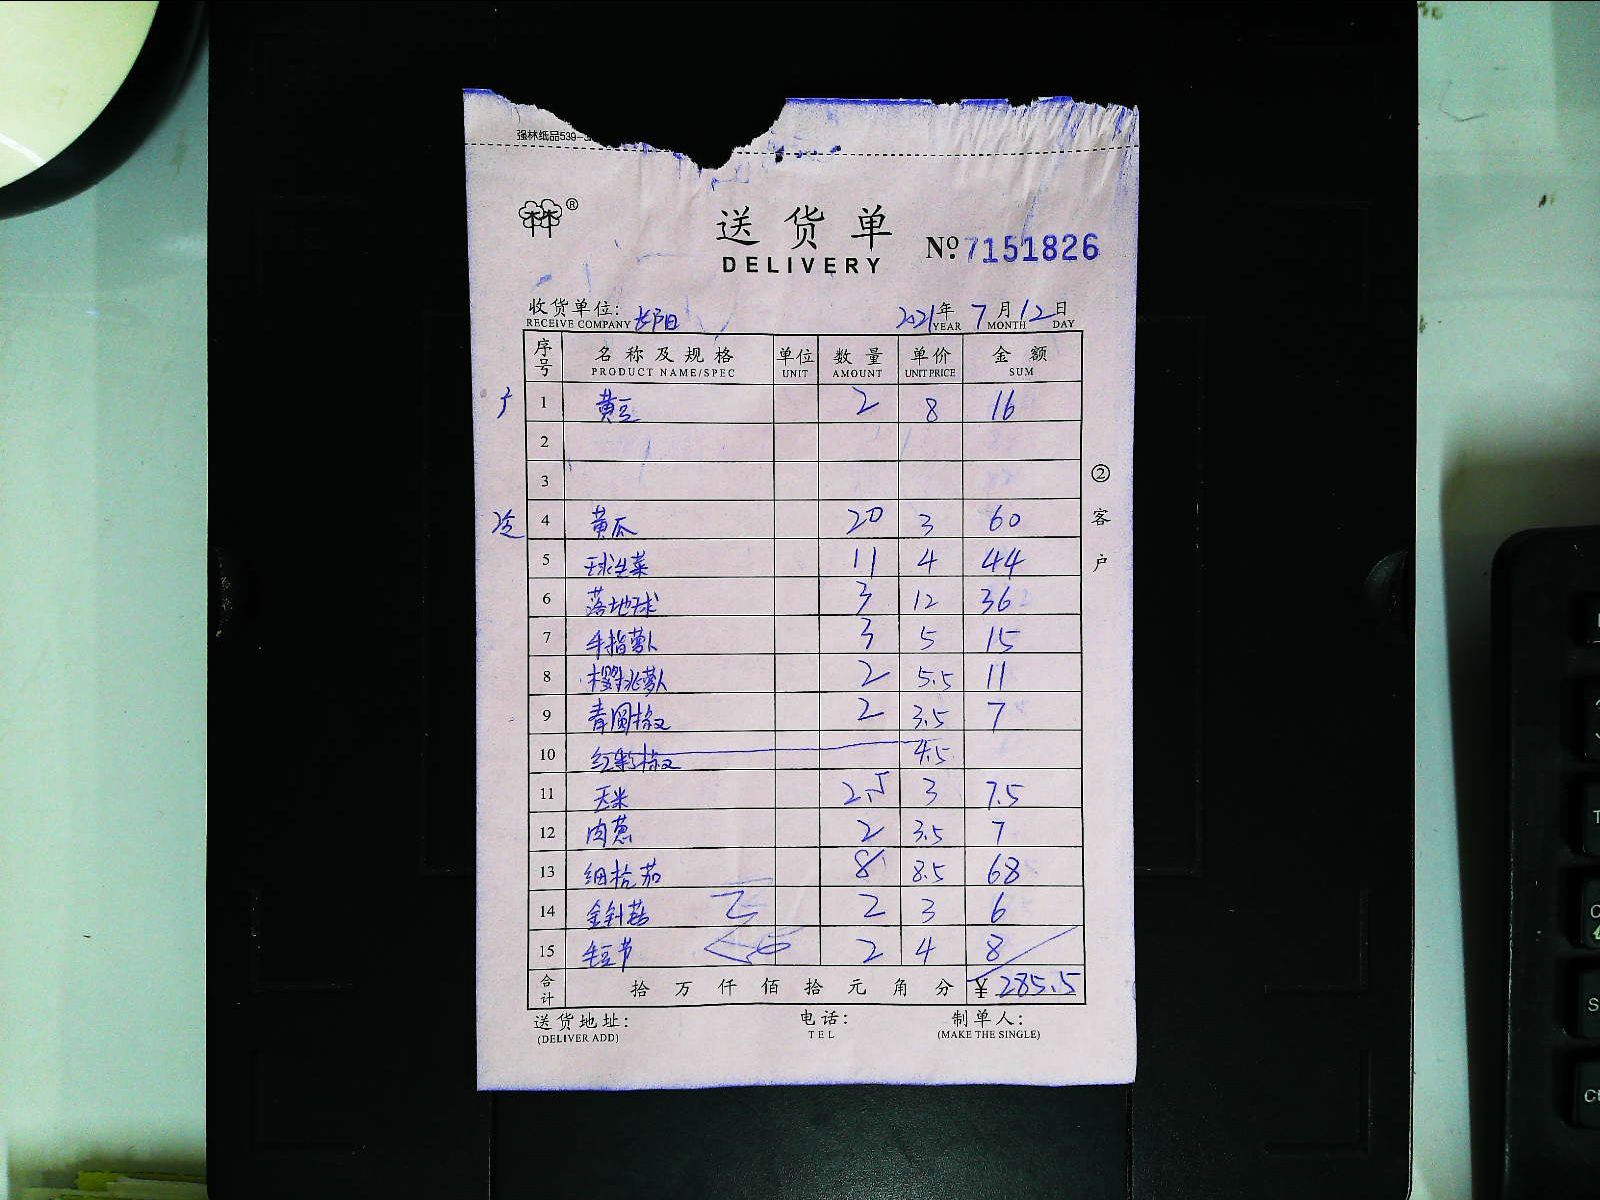 强林纸品539-
®
送货单
DELIVERY
№:7151826
收货单位: 长阳
RECEIVE COMPANY
2021年 7月12日
YEAR MONTH DAY
序号 名称及规格 单位 数量 单价 金额
PRODUCT NAME/SPEC UNIT AMOUNT UNIT PRICE SUM
1 黄豆 2 8 16
2
3
4 黄瓜 20 3 60
5 球生菜 11 4 44
6 落地球 3 12 36
7 手指萝卜 3 5 15
8 樱桃萝卜 2 5.5 11
9 青圆椒 2 3.5 7
10 红彩椒 4.5
11 玉米 2.5 3 7.5
12 肉葱 2 3.5 7
13 细茄 8 8.5 68
14 金针菇 2 3 6
15 2 4 8
合计 拾万仟佰拾元角分 ¥285.5
② 客户
送货地址: 电话: 制单人:
(DELIVER ADD) TEL (MAKE THE SINGLE)